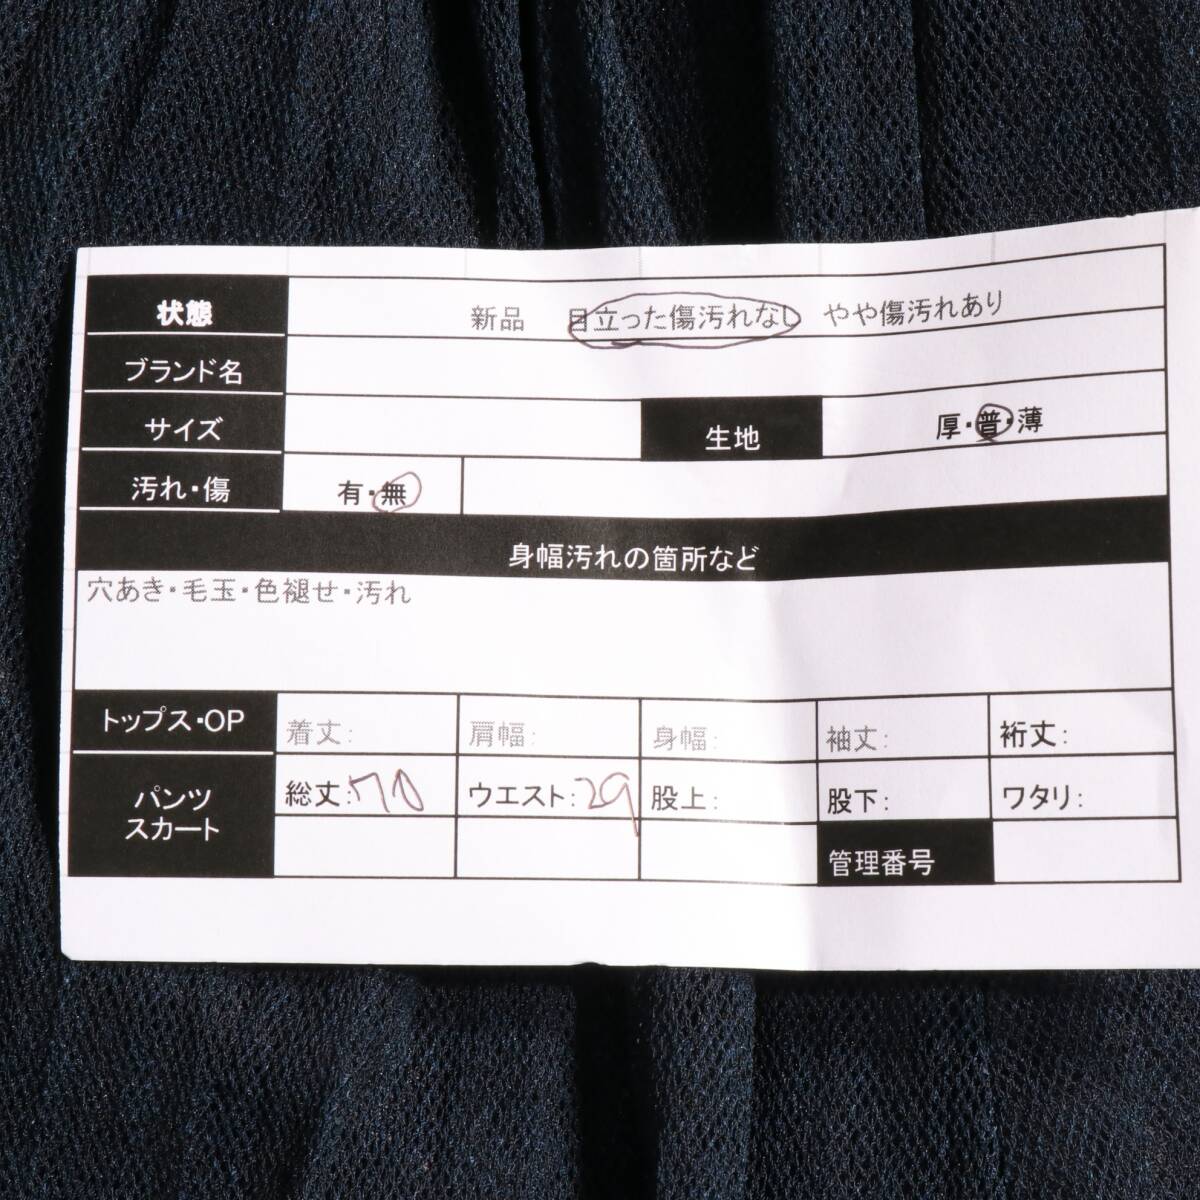 状態 新品 目立った傷汚れなし やや傷汚れあり
ブランド名
サイズ 生地 厚・普・薄
汚れ・傷 有・無
身幅汚れの箇所など
穴あき・毛玉・色褪せ・汚れ
トップス・OP 着丈: 肩幅: 身幅: 袖丈: 裄丈:
パンツ 総丈:70 ウエスト:29 股上: 股下: ワタリ:
スカート
管理番号